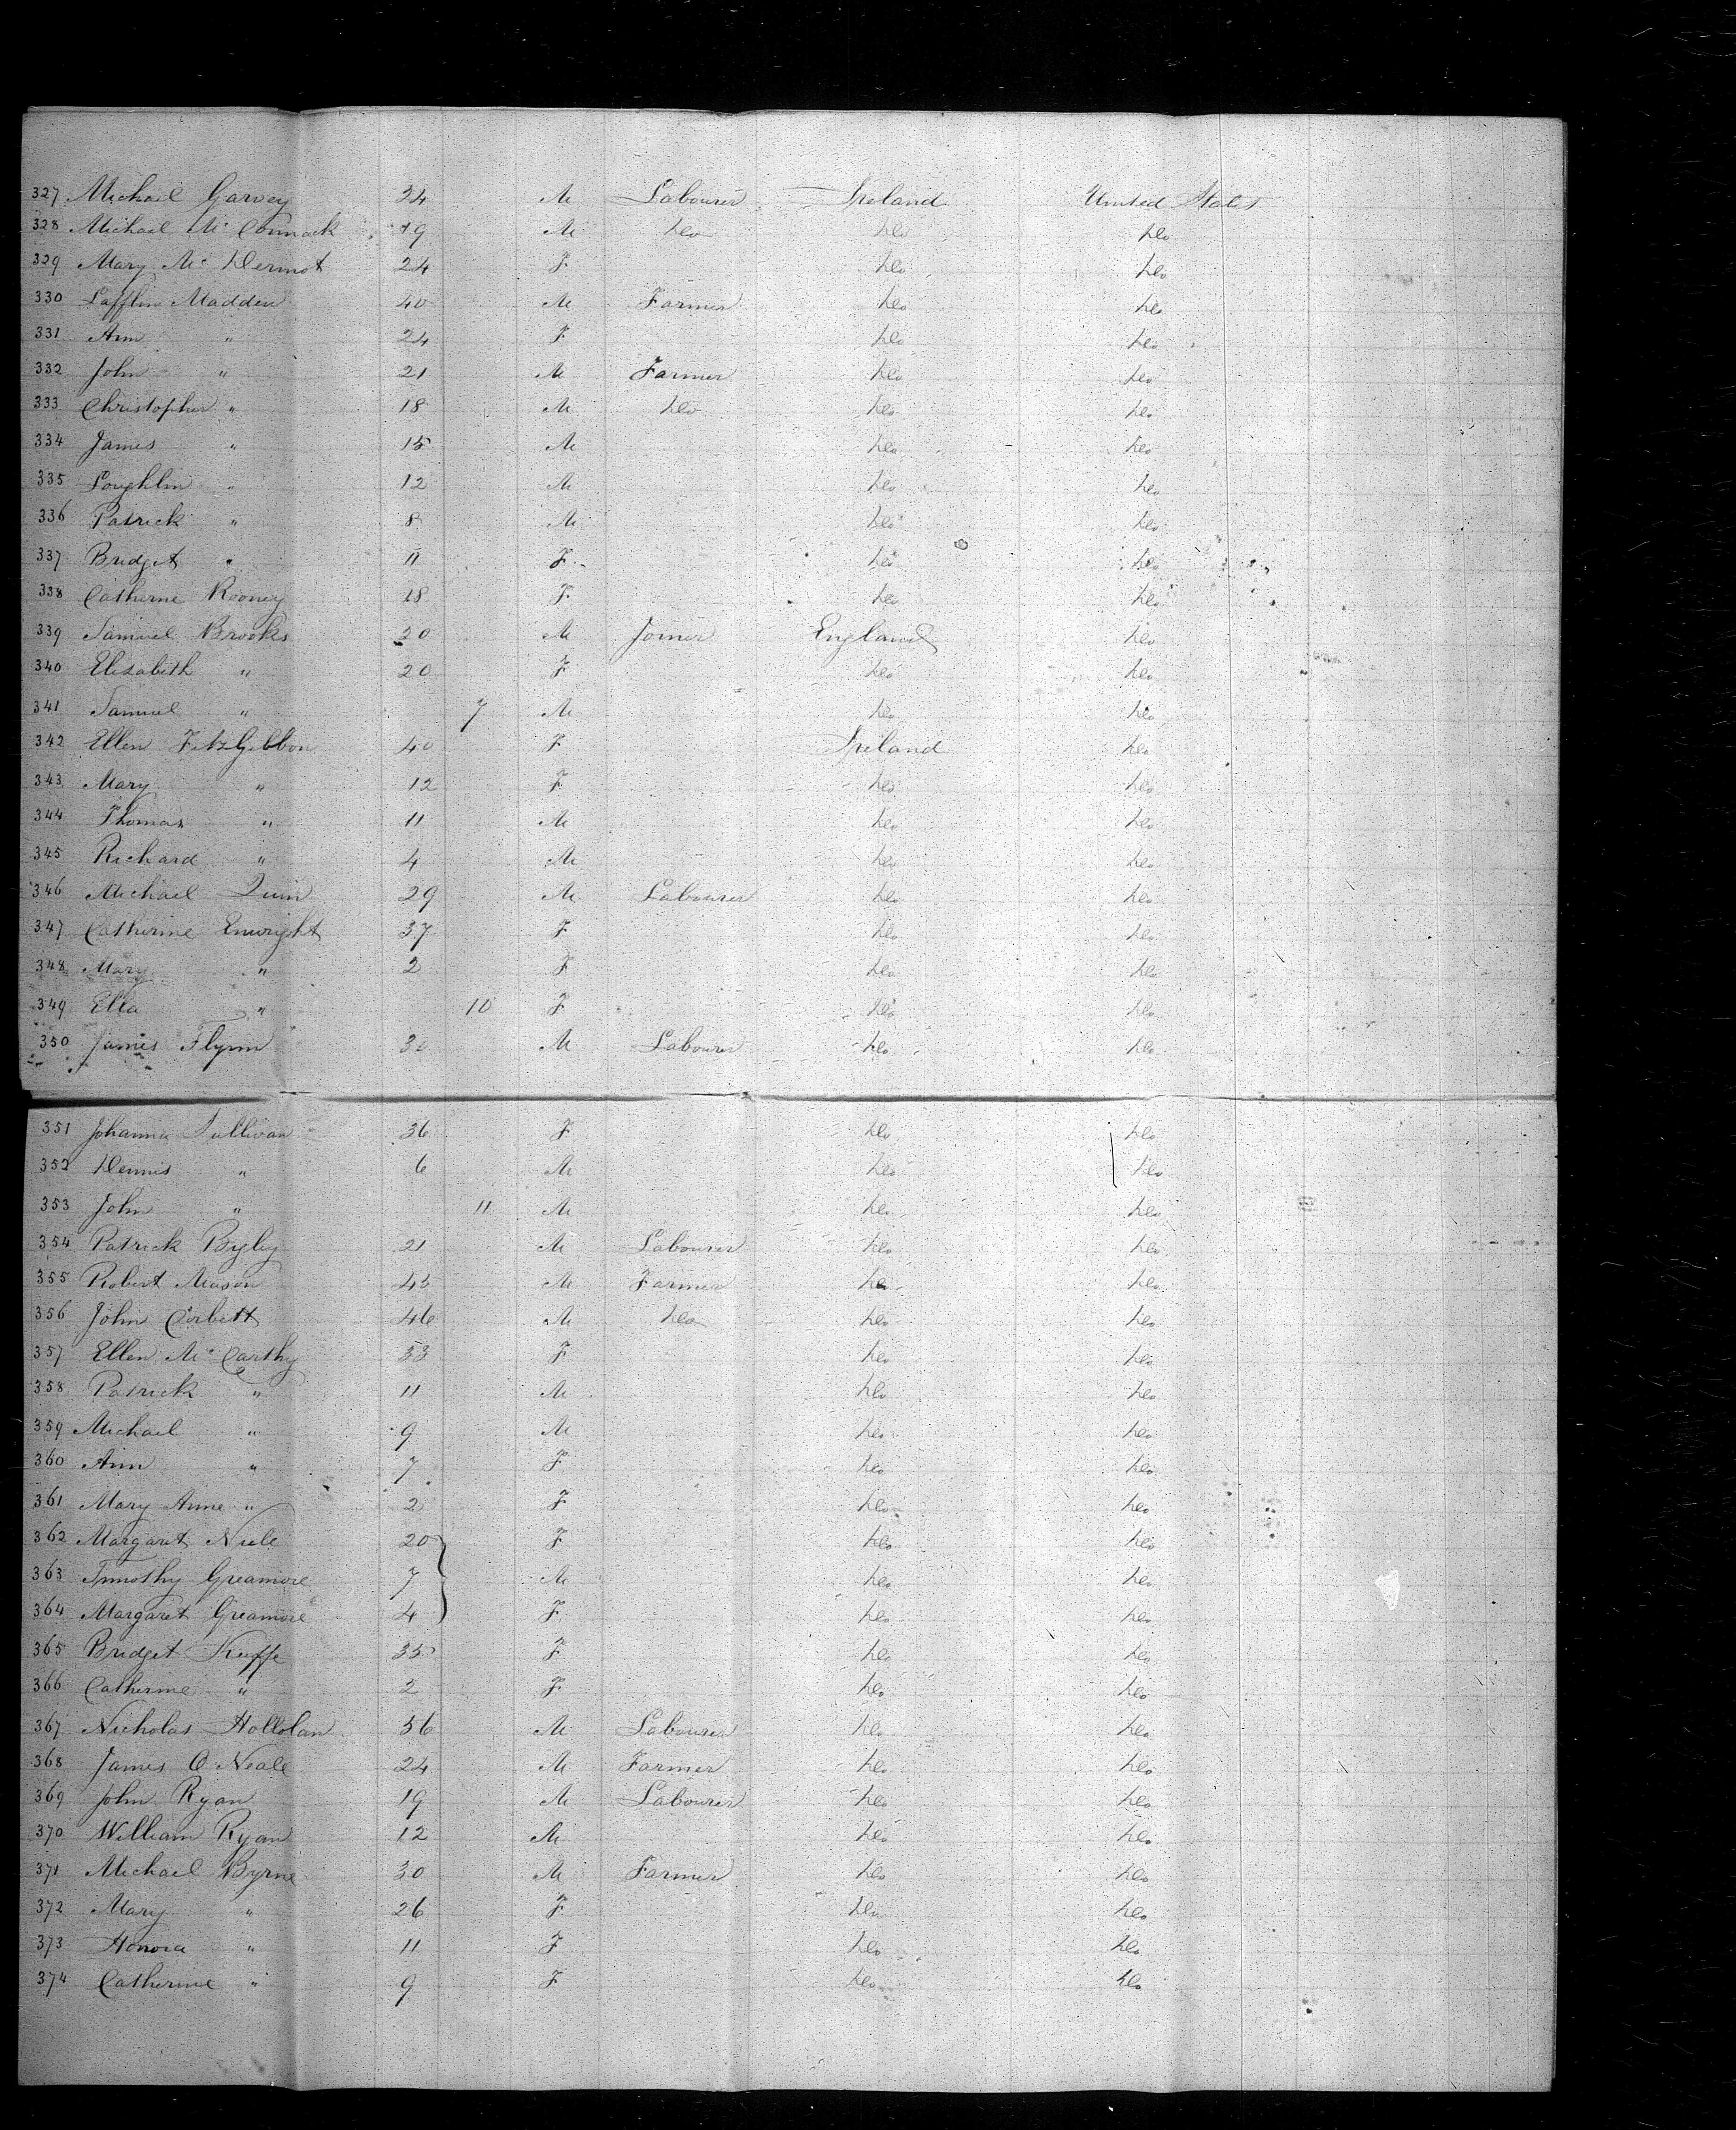 327 Michael Garvey 24 M Labourer Ireland United States
328 Michael McCormack 19 M Do Do Do
329 Mary McDermot 24 F Do Do
330 Lafflin Madden 40 M Farmer Do Do
331 Ann " 24 F Do Do
332 John " 21 M Farmer Do Do
333 Christopher " 18 M Do Do Do
334 James " 15 M Do Do
335 Loughlin " 12 M Do Do
336 Patrick " 8 M Do Do
337 Bridget " 11 F Do Do
338 Catherne Rooney 18 F Do Do
339 Samuel Brooks 20 M Joiner England Do
340 Elisabeth " 20 F Do Do
341 Samuel " 7 M Do Do
342 Ellen FitzGibbon 40 F Ireland Do
343 Mary " 12 F Do Do
344 Thomas " 11 M Do Do
345 Richard " 4 M Do Do
346 Michael Quin 29 M Labourer Do Do
347 Catherine Enwright 37 F Do Do
348 Mary " 2 F Do Do
349 Ella " 10 F Do Do
350 James Flynn M Labourer Do Do
351 Johanna Sullivan 36 F Do Do
352 Dennis " 6 M Do Do
353 John " 11 M Do Do
354 Patrick 21 M Labourer Do Do
355 Robert Mason 45 M Farmer Do Do
356 John Corbett 46 M Do Do Do
357 Ellen McCarthy 33 F Do Do
358 Patrick " 11 M Do Do
359 Michael " 9 M Do Do
360 Ann " 7 F Do Do
361 Mary Anne " 2 F Do Do
362 Margaret Niele 20 F Do Do
363 Timothy Greamore 7 M Do Do
364 Margaret Greamore 4 F Do Do
365 Bridget Kieffe 35 F Do Do
366 Catherine " 2 F Do Do
367 Nicholas Hollolan 36 M Labourer Do Do
368 James O Neale 24 M Farmer Do Do
369 John Ryan 19 M Labourer Do Do
370 William Ryan 12 M Do Do
371 Michael Byrne 30 M Farmer Do Do
372 Mary " 26 F Do Do
373 Honora " 11 F Do Do
374 Catherine " 9 F Do Do